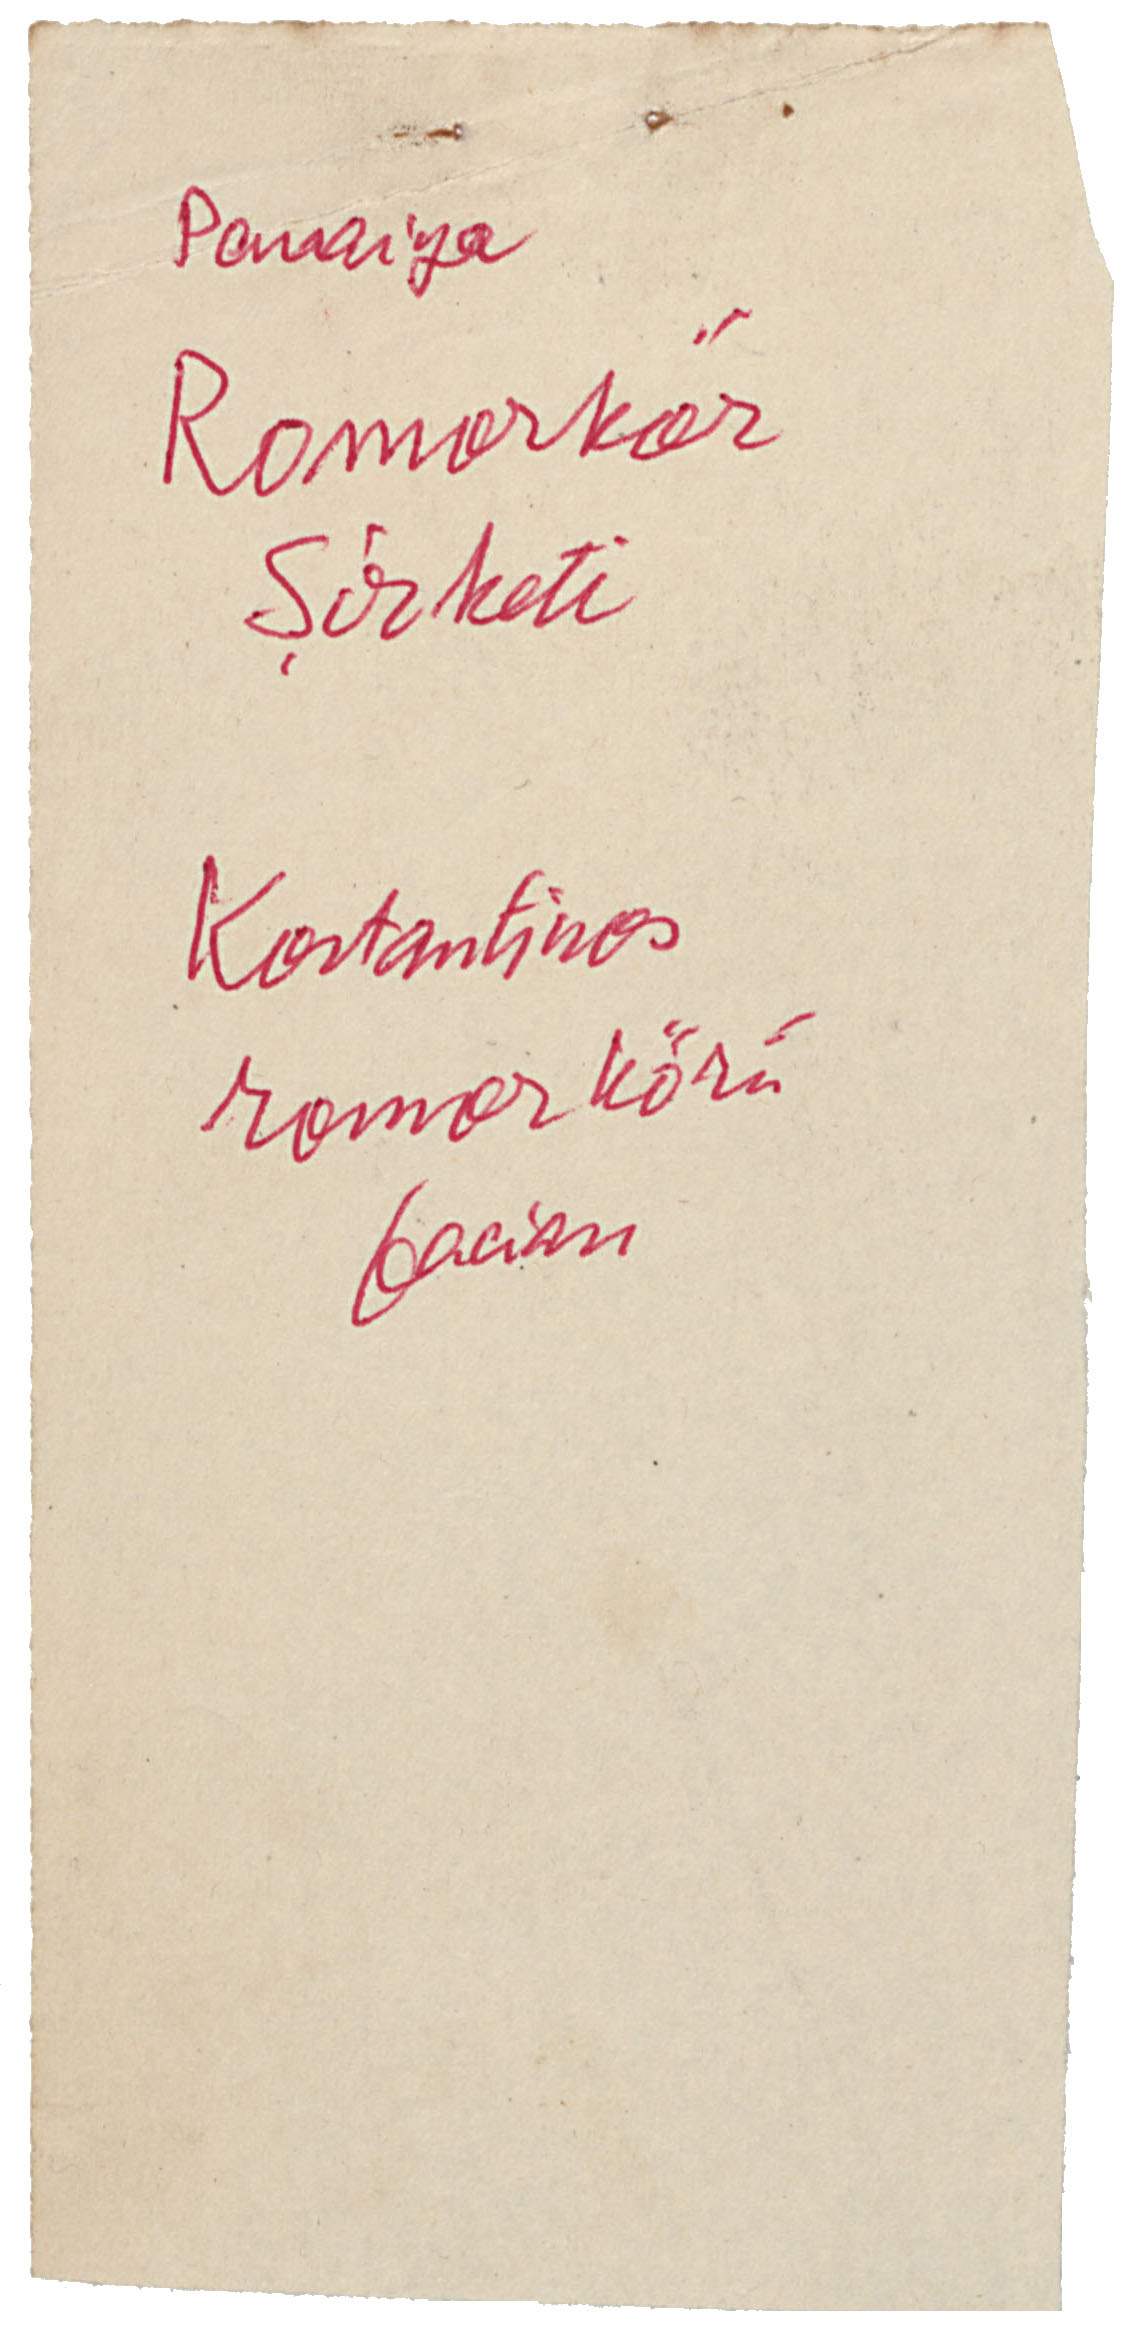 Panaiya
Romorkör
Şirketi
Kostantinos
romorkörü
faciası